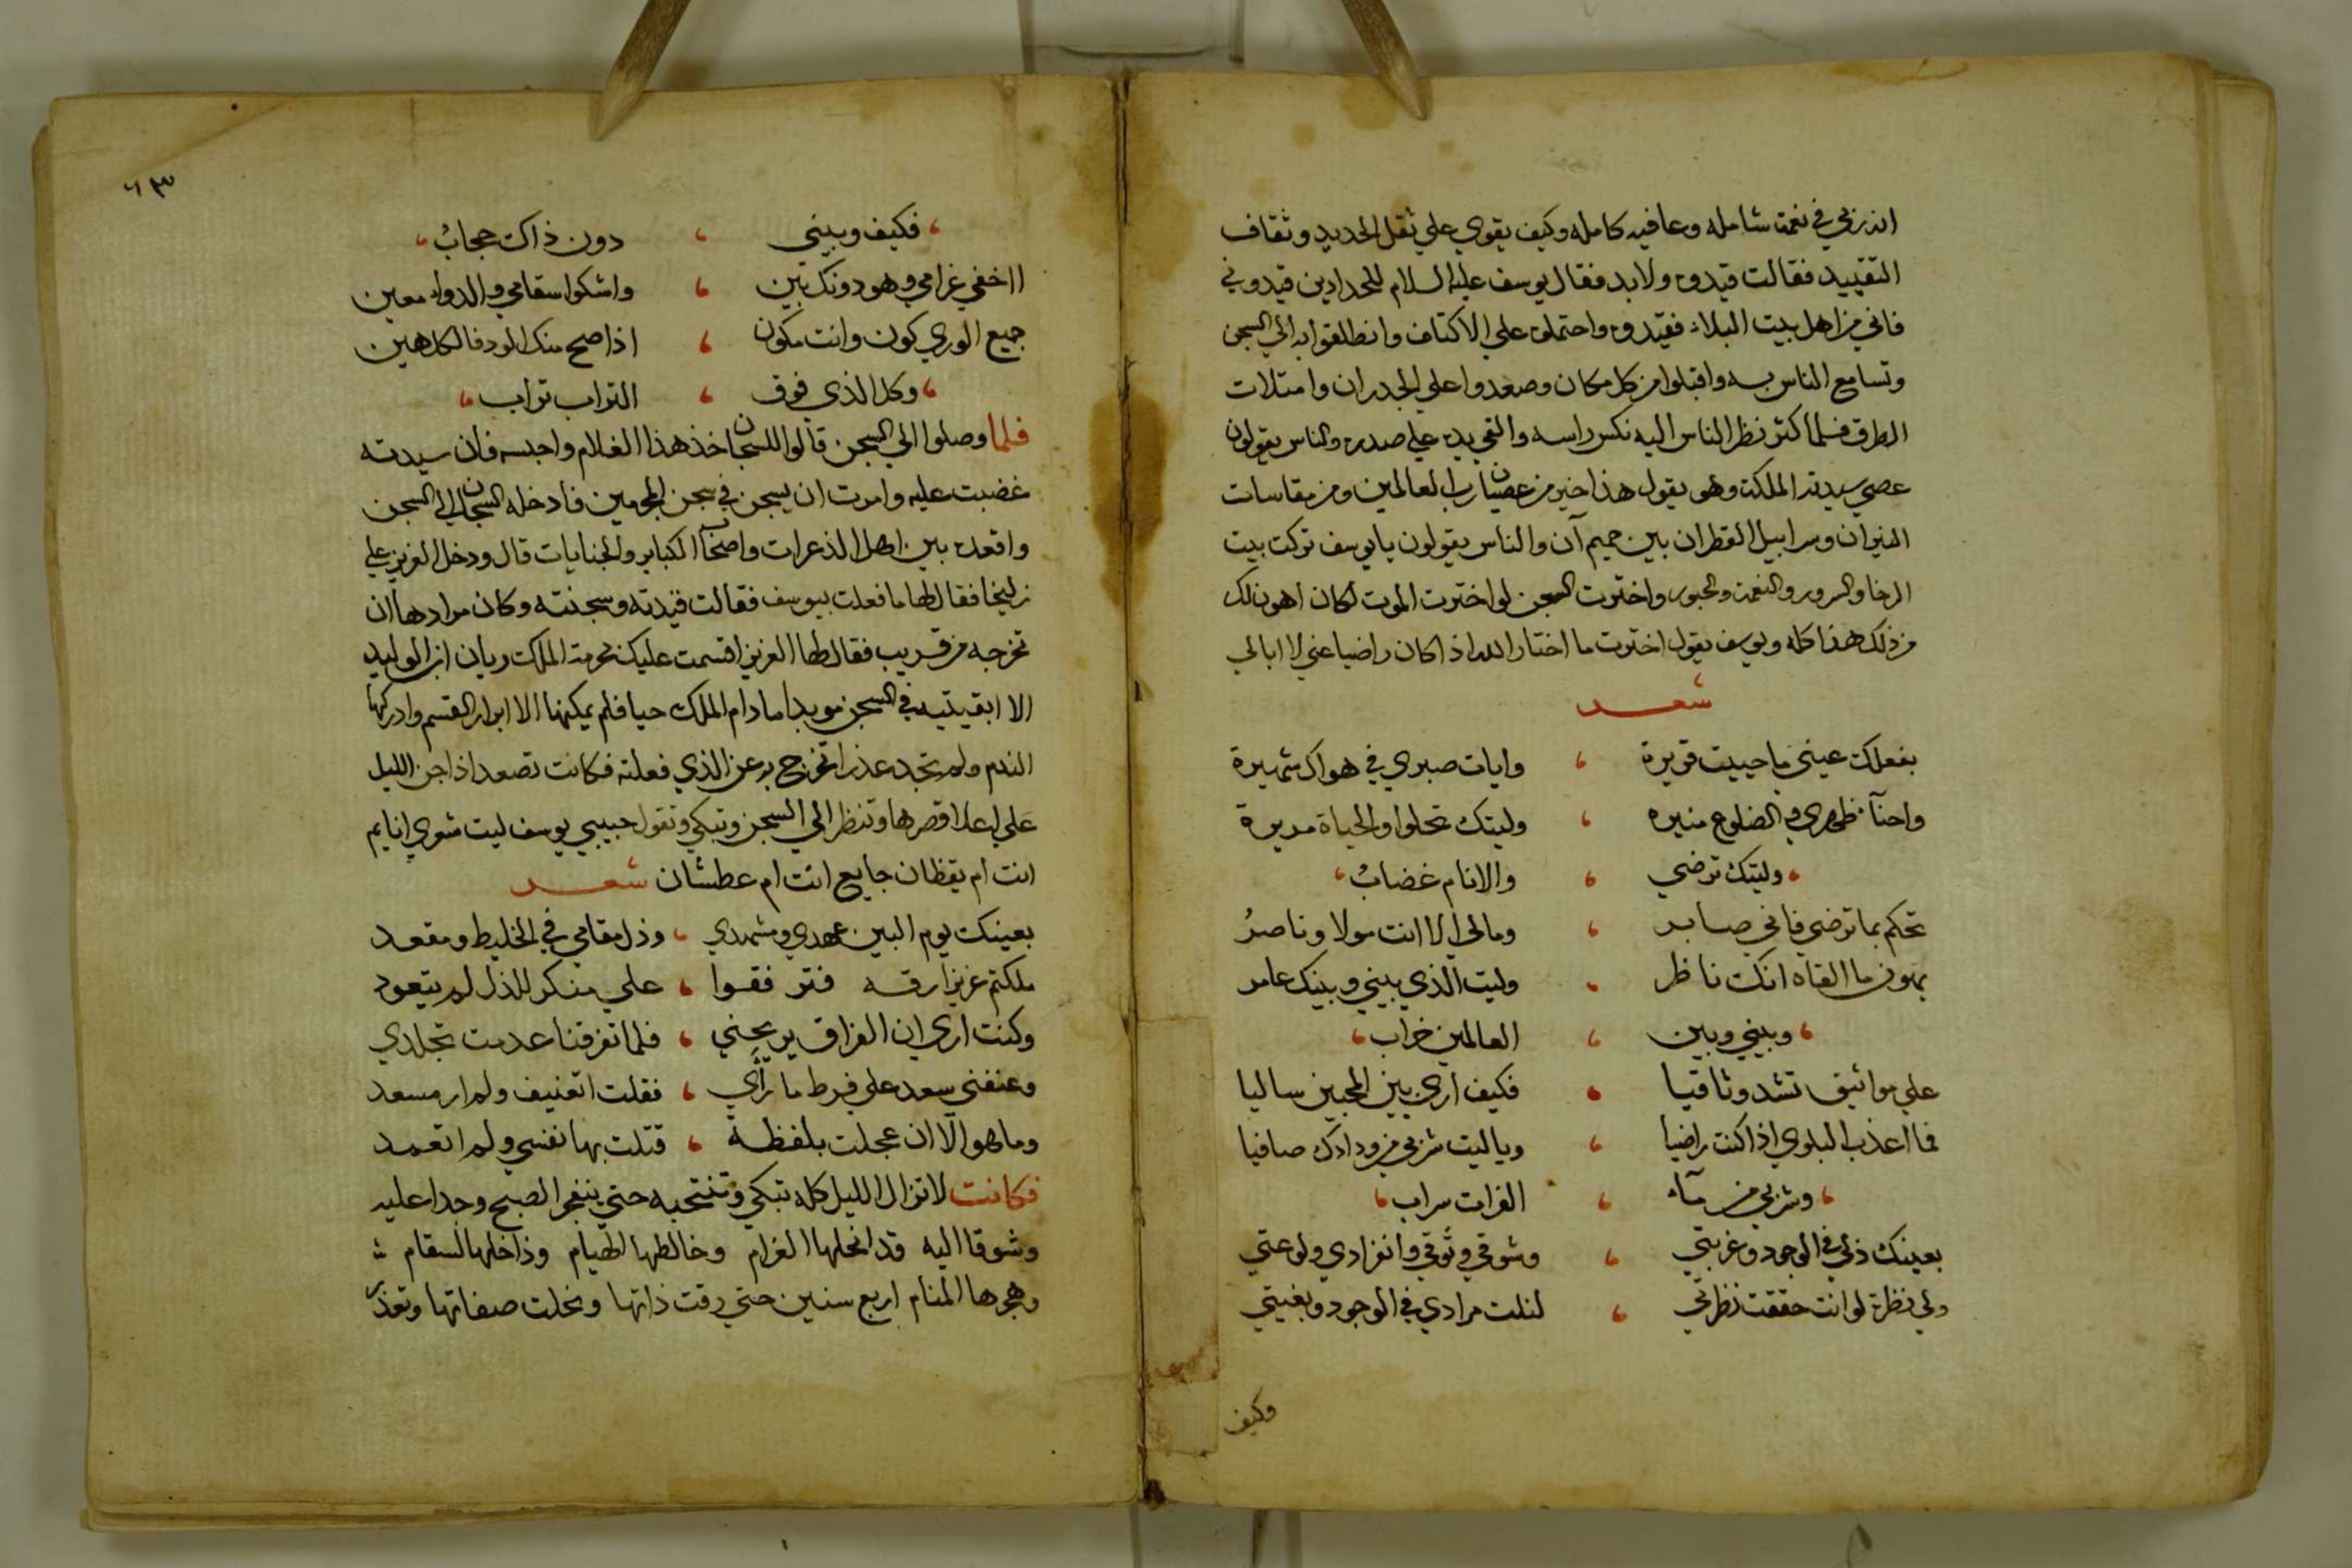 انه ربي في نعمة شامله وعافيه كامله وكيف يقوي علي ثقل الحديد وثقاف
التقييد فقالت قيدوه ولا بد فقال يوسف عليه السلام للحدادين قيدوني
فاني من اهل بيت البلاء فقيدوه واحتملوه علي الاكتاف وانطلقوا به الي السجن
وتسامع الناس به واقبلوا من كل مكان وصعدوا علي الجدران وامتلات
الطرق فلما كثر نظر الناس اليه نكس راسه والقي يده علي صدره والناس يقولون
عصي سيدته الملكة وهو يقول هذا خير من عصيان رب العالمين ومن مقاسات
النيران وسرابيل القطران بين حميم آن والناس يقولون يا يوسف تركت بيت
الرخا والسرور والنعمة والحبور واخترت السجن لو اخترت الموت لكان اهون لك
من ذلك هذا كله ويوسف يقول اخترت ما اختار الله اذا كان راضيا عني لا ابالي
شعر
بفعلك عيني ما حييت قريرة ، وايات صبري في هواك شهيرة
واحنآء ظهري والضلوع منيره ، وليتك تحلوا والحياة مريرة
، وليتك ترضي ، والانام غضابُ ،
تحكم بما ترضي فاني صابر ، ومالي الا انت مولا وناصرُ
يهون ما القاه انك ناظر ، وليت الذي بيني وبينك عامر
، وبيني وبين ، العالمين خراب ،
علي مواثيق تشد وثاقيا ، فكيف اري بين المحبين ساليا
فما اعذب البلوي اذا كنت راضيا ، ويا ليت شربي من ودادك صافيا
، وشربي من مآء ، الفرات سراب ،
بعينك ذلي في الوجود وغربتي ، وشوقي وتوقي وانفرادي ولوعتي
ولي نظرة لو انت حققت نظرتي ، لنلت مرادي في الوجود وبغيتي
وكيف
٦٣
، فكيف وبيني ، دون ذاك حجابُ ،
ااخفي غرامي وهو دونك بين ، واشكوا سقامي والدواء معين
جميع الوري كون وانت مكون ، اذا صح منك الود فالكل هين
، وكل الذي فوق ، التراب تراب ،
فلما وصلوا الي السجن قالوا للسجان خذ هذا الغلام واحبسه فان سيدته
غضبت عليه وامرت ان يسجن في سجن المجرمين فادخله السجان الي السجن
واقعده بين اهل الذعرات واصحاب الكباير والجنايات قال ودخل العزيز علي
زليخا فقال لها ما فعلت بيوسف فقالت قيدته وسجنته وكان مرادها ان
تخرجه من قريب فقال لها العزيز اقسمت عليك بحرمة الملك ريان ابن الوليد
الا ابقيتيه في السجن موبدا ما دام الملك حيا فلم يمكنها الا ابرار القسم وادركها
الندم ولم تجد عذرا تخرج به عن الذي فعلته فكانت تصعد اذا جن الليل
علي اعلا قصرها وتنظر الي السجن وتبكي وتقول حبيبي يوسف ليت شعري انايم
انت ام يقظان جايع انت ام عطشان شعر
بعينك يوم البين عهدي ومشهدي ، وذل مقامي في الخليط ومقعد
ملكتم عزيزا رقه فترفقوا ، علي منكر للذل لم يتعود
وكنت اري ان الفراق يريحني ، فلما تفرقنا عدمت تجلدي
وعنفني سعد علي فرط ما رآي ، فقلت اتعنيف ولم ار مسعد
وما هو الا ان عجلت بلفظة ، قتلت بها نفسي ولم اتعمد
فكانت لا تزال الليل كله تبكي وتنتحبه حتي ينفجر الصبح وجدا عليه
وشوقا اليه قد انحلها الغرام وخالطها الهيام وداخلها السقام
وهجرها المنام اربع سنين حتي رقت ذاتها ونحلت صفاتها وتعذر